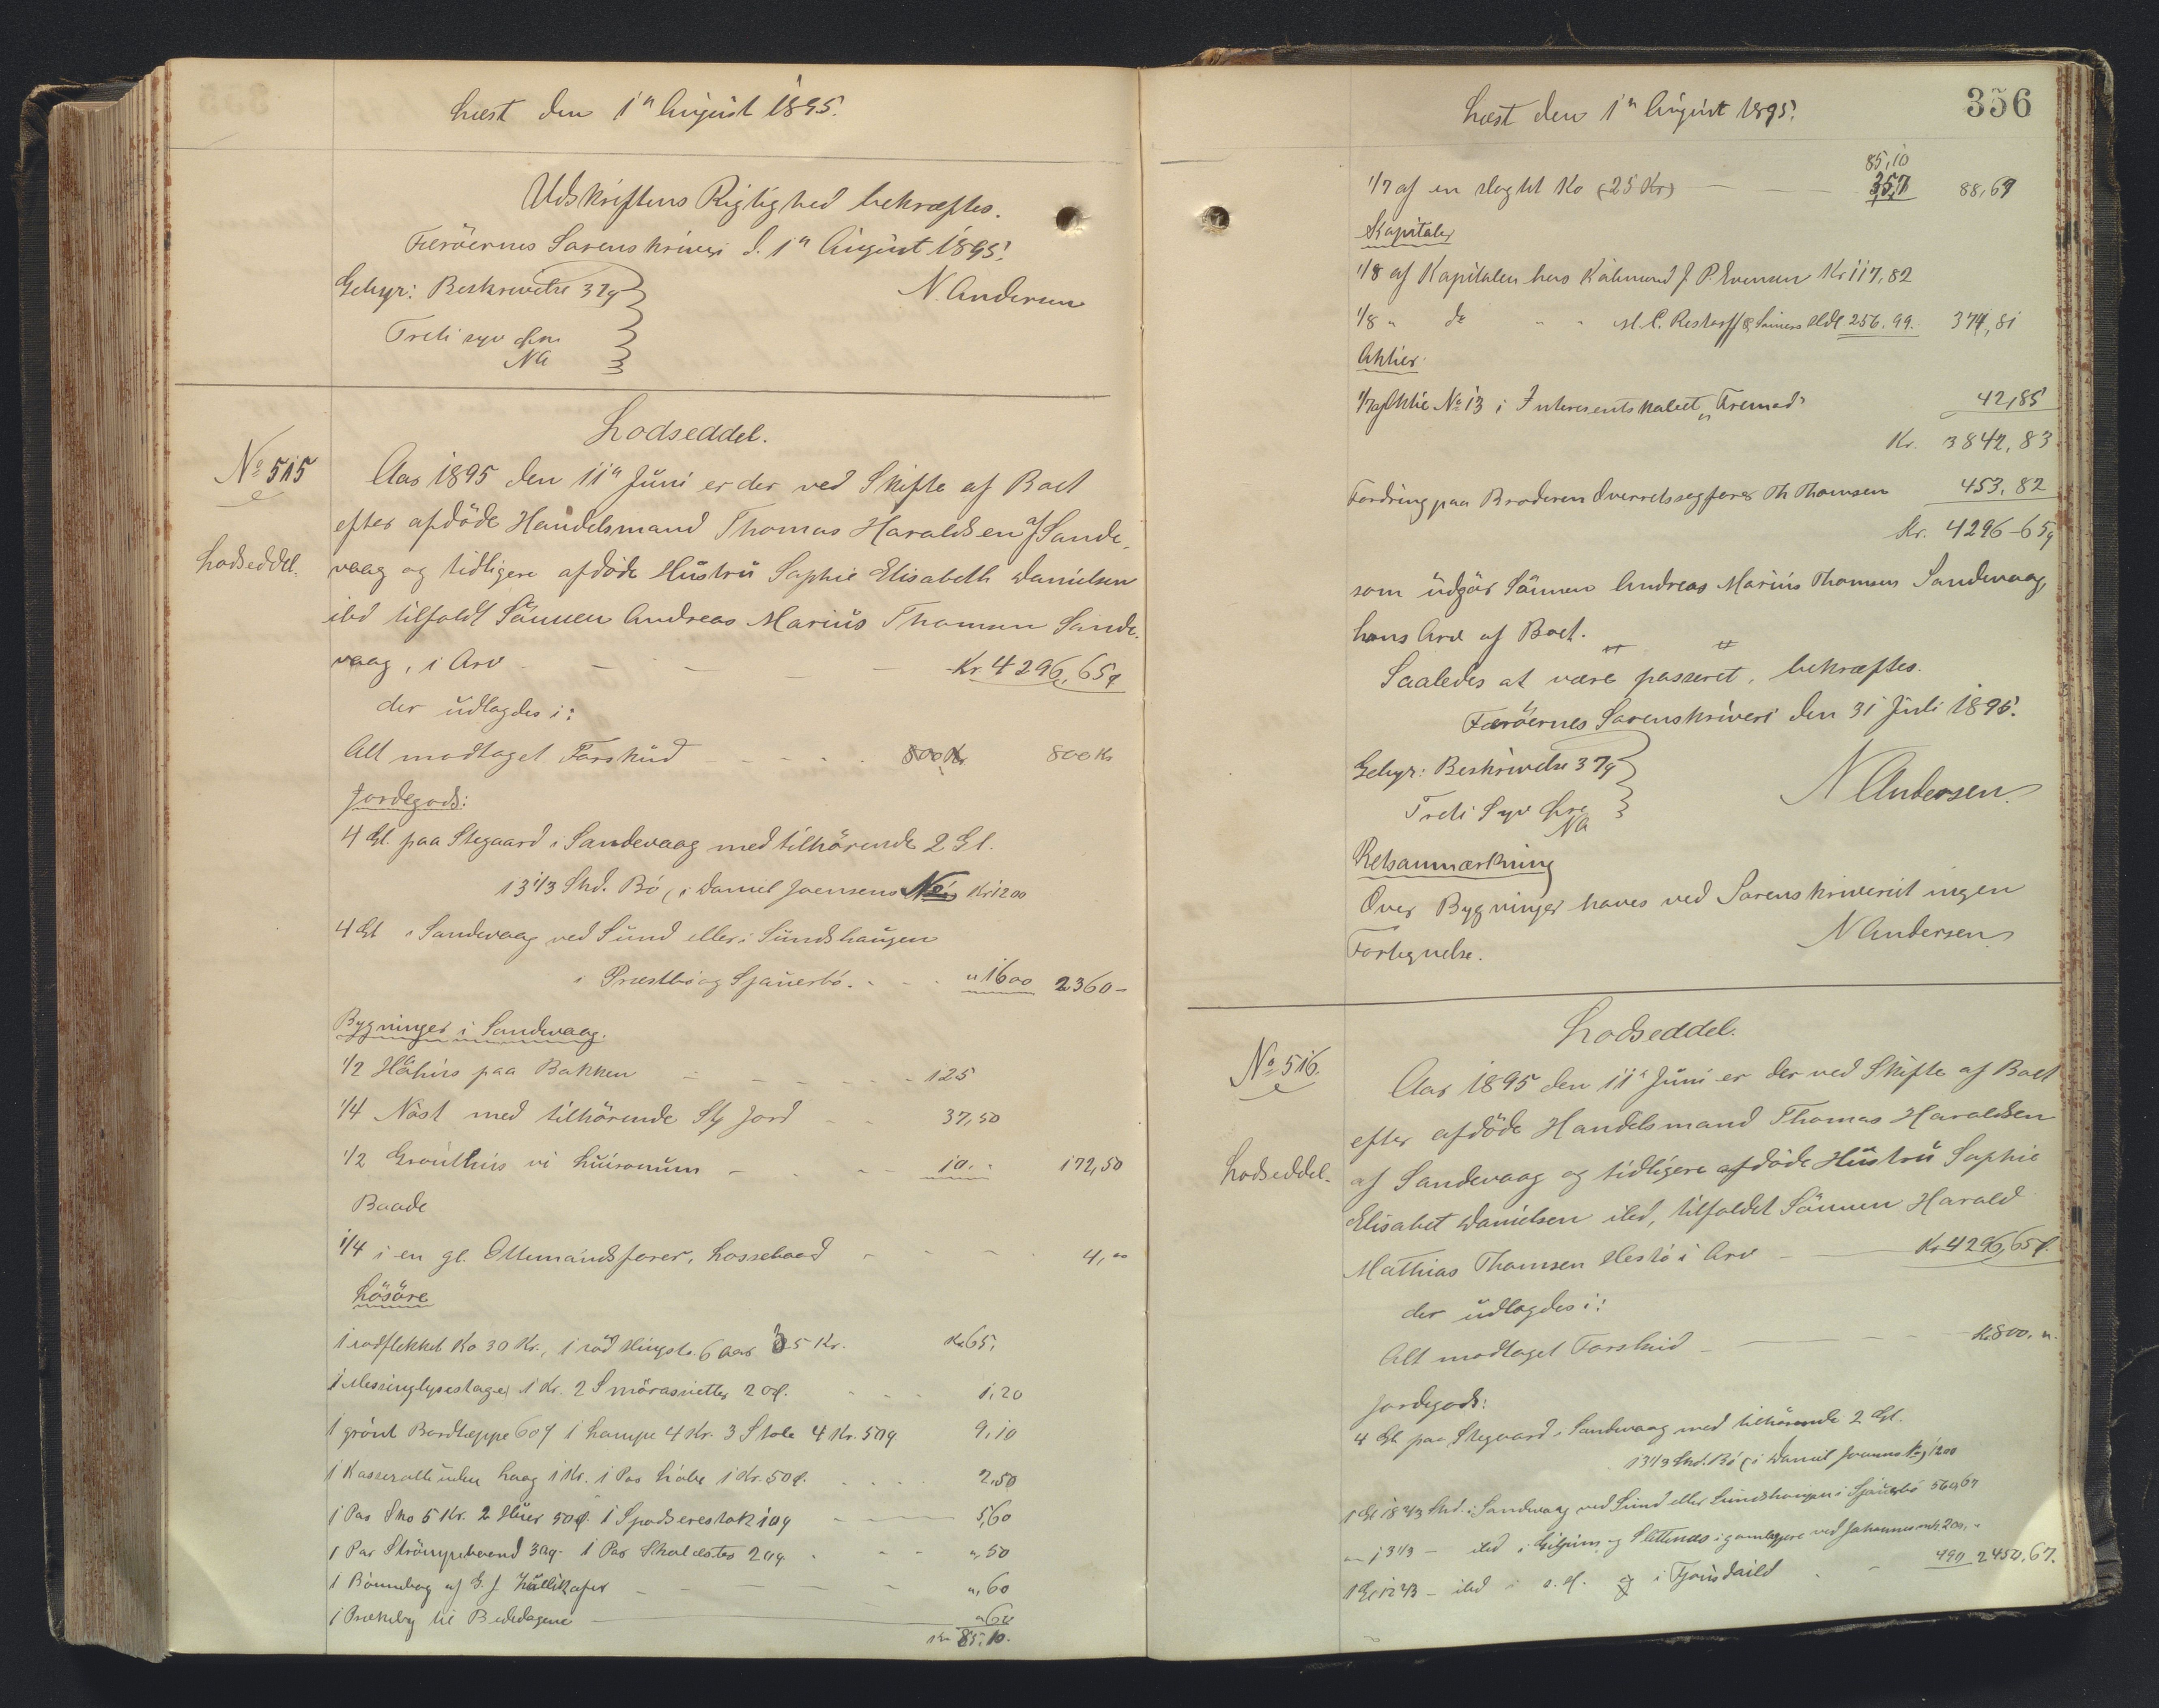 Læst den 1n August 1895.
Udskriftens Rigtighed bekræftes.
Færöernes Sorenskriveri d. 1n August 1895.
Gebyr: Beskrivelse 37 N. Andersen
Treti syv Øre
NA
Lodseddel.
No 515
Lodseddel.
Aar 1895 den 11n Juni er der ved Skifte af Boet
efter afdöde Handelsmand Thomas Haraldsen af Sande-
vaag og tidligere afdöde Hustru Sophie Elisabeth Danielsen
ibd tilfaldt Sönnen Andreas Marius Thomsen Sande-
vaag, i Arv Kr 4296,65
der udlagdes i:
Alt modtaget Forskud 800 Kr 800 Kr
Jordegods:
4 Gl. paa Stegaard i Sandevaag med tilhörende 2 Gl.
13 1/3 Skd. Bö (i Daniel Joensens Kr 1200
4 Gl i Sandevaag ved Sund eller i Sundshaugen
i Præstbö og Sjauerbö. " 1600 2360 -
Bygninger i Sandevaag.
1/2 Höhus paa Bakken 125
1/4 Nöst med tilhörende Jord 37,50
1/2 Grouthus vi 10. 172,50
Baade
1/4 i en gl. Ottemandsfarer, Lossebaad 4,00
Lösöre
1 rödflekket Ko 30 Kr., 1 röd Hingst 6 Aar 35 Kr. Kr 65,
1 Messinglysestage 1 Kr. 2 Smörasietter 20 1,20
1 grönt Bordtæppe 60 1 Lampe 4 Kr. 3 Stole 4 Kr. 50 9,10
1 Kasserolle uden Laag 1 Kr. 1 Par 1 Kr. 50 2,50
1 Par Sko 5 Kr. 2 Huer 50 1 Spadserestok 10 5,60
1 Par Strömpebaand 30 1 Par 20 ",50
1 Bönnebog af ",60
1 Prækeby til Bededagene "60
Kr 85,10.
Læst den 1n August 1895.
356
85,10
1/7 af en slagtet Ko (25 Kr) 3,57 88,67
Kapitaler
1/8 af Kapitalen hos Köbmand J. P. Evensen Kr 117,82
1/8 " do " " M. C. Restorff & Sönners 256.99. 374,81
Aktier
1/7 af Aktie No 13 i Interesentskabet "Fremad" 42,85
Kr. 3842,83
Fordring paa Broderen Overretssagförer Th Thomsen 453,82
Kr. 4296-65
som udgör Sönnen Andreas Marius Thomsen Sandevaag,
hans Arv af Boet.
Saaledes at være passeret, bekræftes.
Færöernes Sorenskriveri den 31 Juli 1895.
Gebyr: Beskrivelse 37
Treti Syv Øre N Andersen
NA
Retsanmærkning
Over Bygninger haves ved Sorenskriveriet ingen
Fortegnelse. N Andersen
Lodseddel.
No 516.
Lodseddel.
Aar 1895 den 11n Juni er der ved Skifte af Boet
efter afdöde Handelsmand Thomas Haraldsen
af Sandevaag og tidligere afdöde Hustru Sophie
Elisabet Danielsen ibd, tilfaldet Sönnen Harald
Mathias Thomsen Hestö i Arv Kr 4296,65
der udlagdes i:
Alt modtaget Forskud Kr 800. "
Jordegods:
4 Gl paa Stegaard i Sandevaag med tilhörende 2 Gl.
13 1/3 Skd. Bö (i Daniel Joensens 1200
1 Gl 18 2/3 Skd. i Sandevaag ved Sund eller Sundshaugen i Sjauerbö 560,67
" 13 1/3 - ibd i og ved 200, "
1 Gl 12 2/3 - ibd i 490 2450,67.